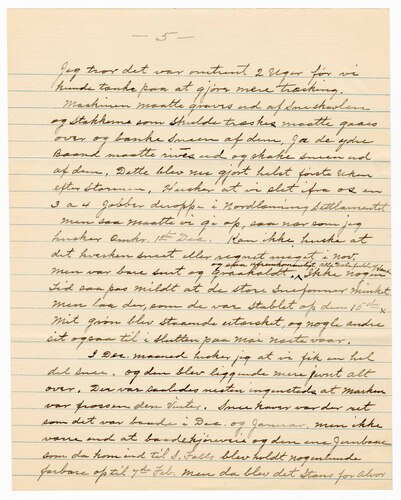 — 5 —
Jeg tror det var omtrent 2 Uger før vi
kunde tænke paa at gjøre mere træsking.
Maskinen maatte graves ud af Sneskavlen
og Stakkerne som skulde træskes maatte gaaes
over og banke Sneen af dem, ja de ydre
Baand maatte rives ud og skake sneen ud
af dem. Dette blev nu gjort helst første Uken
efter Stormen. Husker at vi slet fra os en
3 a 4 Jobber deroppe i Nordlaning Settlamentet
men saa maatte vi gi op, saa nær som jeg
husker omkr. 1ste Dec. Kan ikke huske at
det hverken sneet eller regnet meget i Nov.
men var bare surt og Graakoldt. Ikke nogen
Tid saa pas mildt at de store Snefonner minket
men laa der, som de var stablet op den 15de
Mit grøn blev staaende utærsket, og nogle andre
sit ogsaa til i slutten paa Mai næste vaar.
I Dec. maaned husker jeg at vi fik en hel
del snee. og den blev leggende mere jevnt alt
over. Der var saaledes nesten ingensteds at Marken
var frossen den Vinter. Snee haver var der ret
som det var baade i Dec. og Januar, men ikke
være end at baade kjøreveie og den ene Jernbane
som da kom ind til S. Falls blev holdt nogenlunde
farbare op til 7th Feb. men da blev det Stans for Alvor